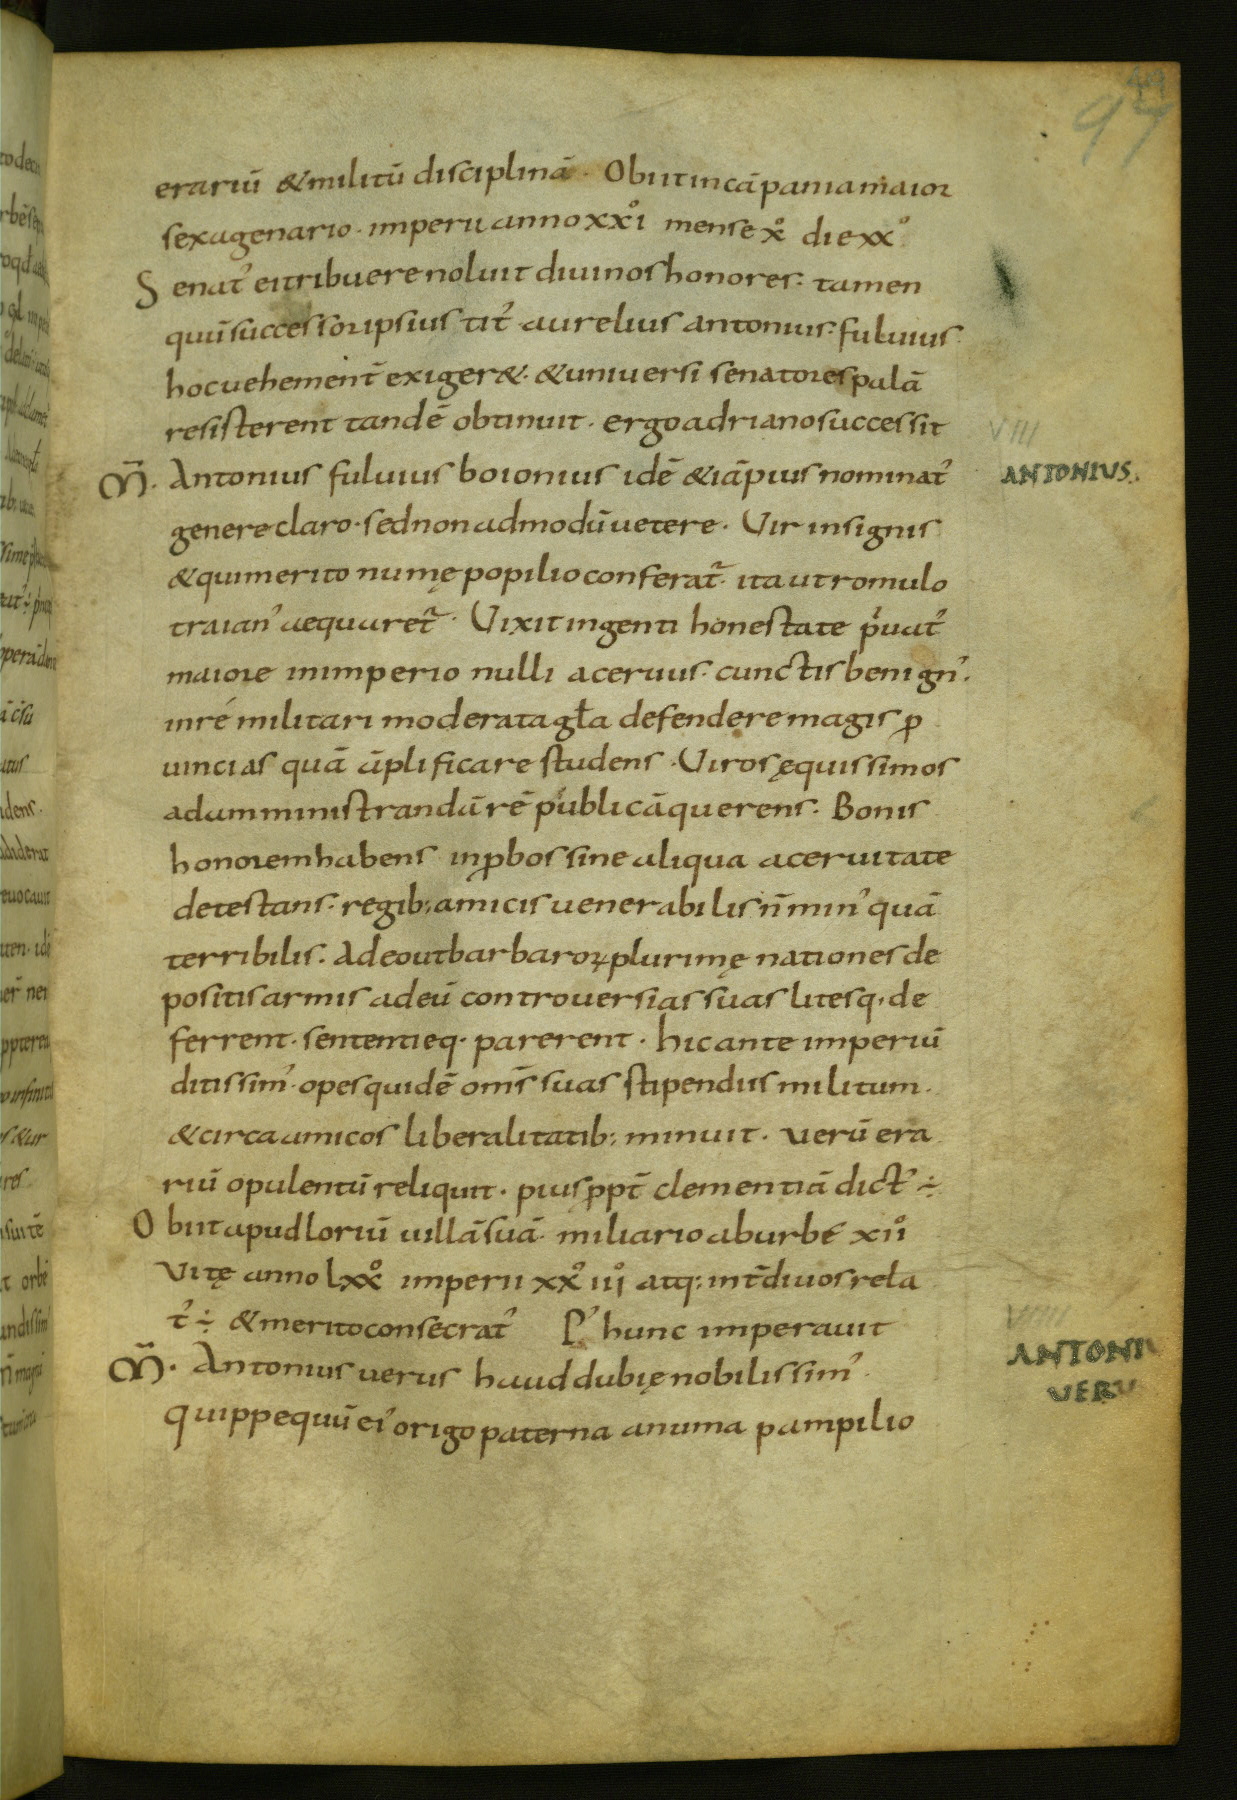 97
49
erariū &militū disciplinā · Obiit incāpania maior
sexagenario · imperii anno xxͦi mense xͦ die xxͦ
Senat᾽ ei tribuere noluit diuinos honores · tamen
quū successor ipsius tit᾽ aurelius antonius · fuluius
hoc uehement̄ exiger& · &uniuersi senatores palā
resisterent tandē obtinuit · ergo adriano successit
M̄ · Antonius fuluius boionius idē &iā pius nominat᾽
genere claro · sed non admodū uetere · Vir insignis
&qui merito numę popilio conferat᷑ · ita ut romulo
traian᾽ aequaret᷑ · Vixit ingenti honestate p͛uat᾽
maiore in imperio nulli aceruus · cunctis benign᾽ ·
in ré militari moderata gła defendere magis ꝓ
uincias quā āplificare studens · Viros ęquissimos
ad amministrandā rē publicā querens · Bonis
honorem habens inꝓbos sine aliqua aceruitate
detestans · regib; amicis uenerabilis n̄ min᾽ quā
terribilis · Adeo ut barbaroꝝ plurimę nationes de
positis armis ad eū controuersias suas litesq; de
ferrent · sententieq · parerent · hic ante imperiū
ditissim᾽ · opes quidē om̄s suas stipendiis militum ·
&circa amicos liberalitatib; minuit · uerū era
riū opulentū reliquit · pius ꝓpt̄ clementiā dict᾽ ÷
Obiit apud loriū uillā suā · miliario ab urbe xiiͦ
Vitę anno lxxͦ imperii xxͦ iiiͦ atq; int̄ diuos rela
t᾽ ÷ &merito consecrat᾽ P᾽ hunc imperauit
M̄ · Antonius uerus haud dubię nobilissim᾽ ·
quippe quū ei᾽ origo paterna a numa pampilio
VIII
ANTONIUS ·
VIIII
ANTONI
VERU